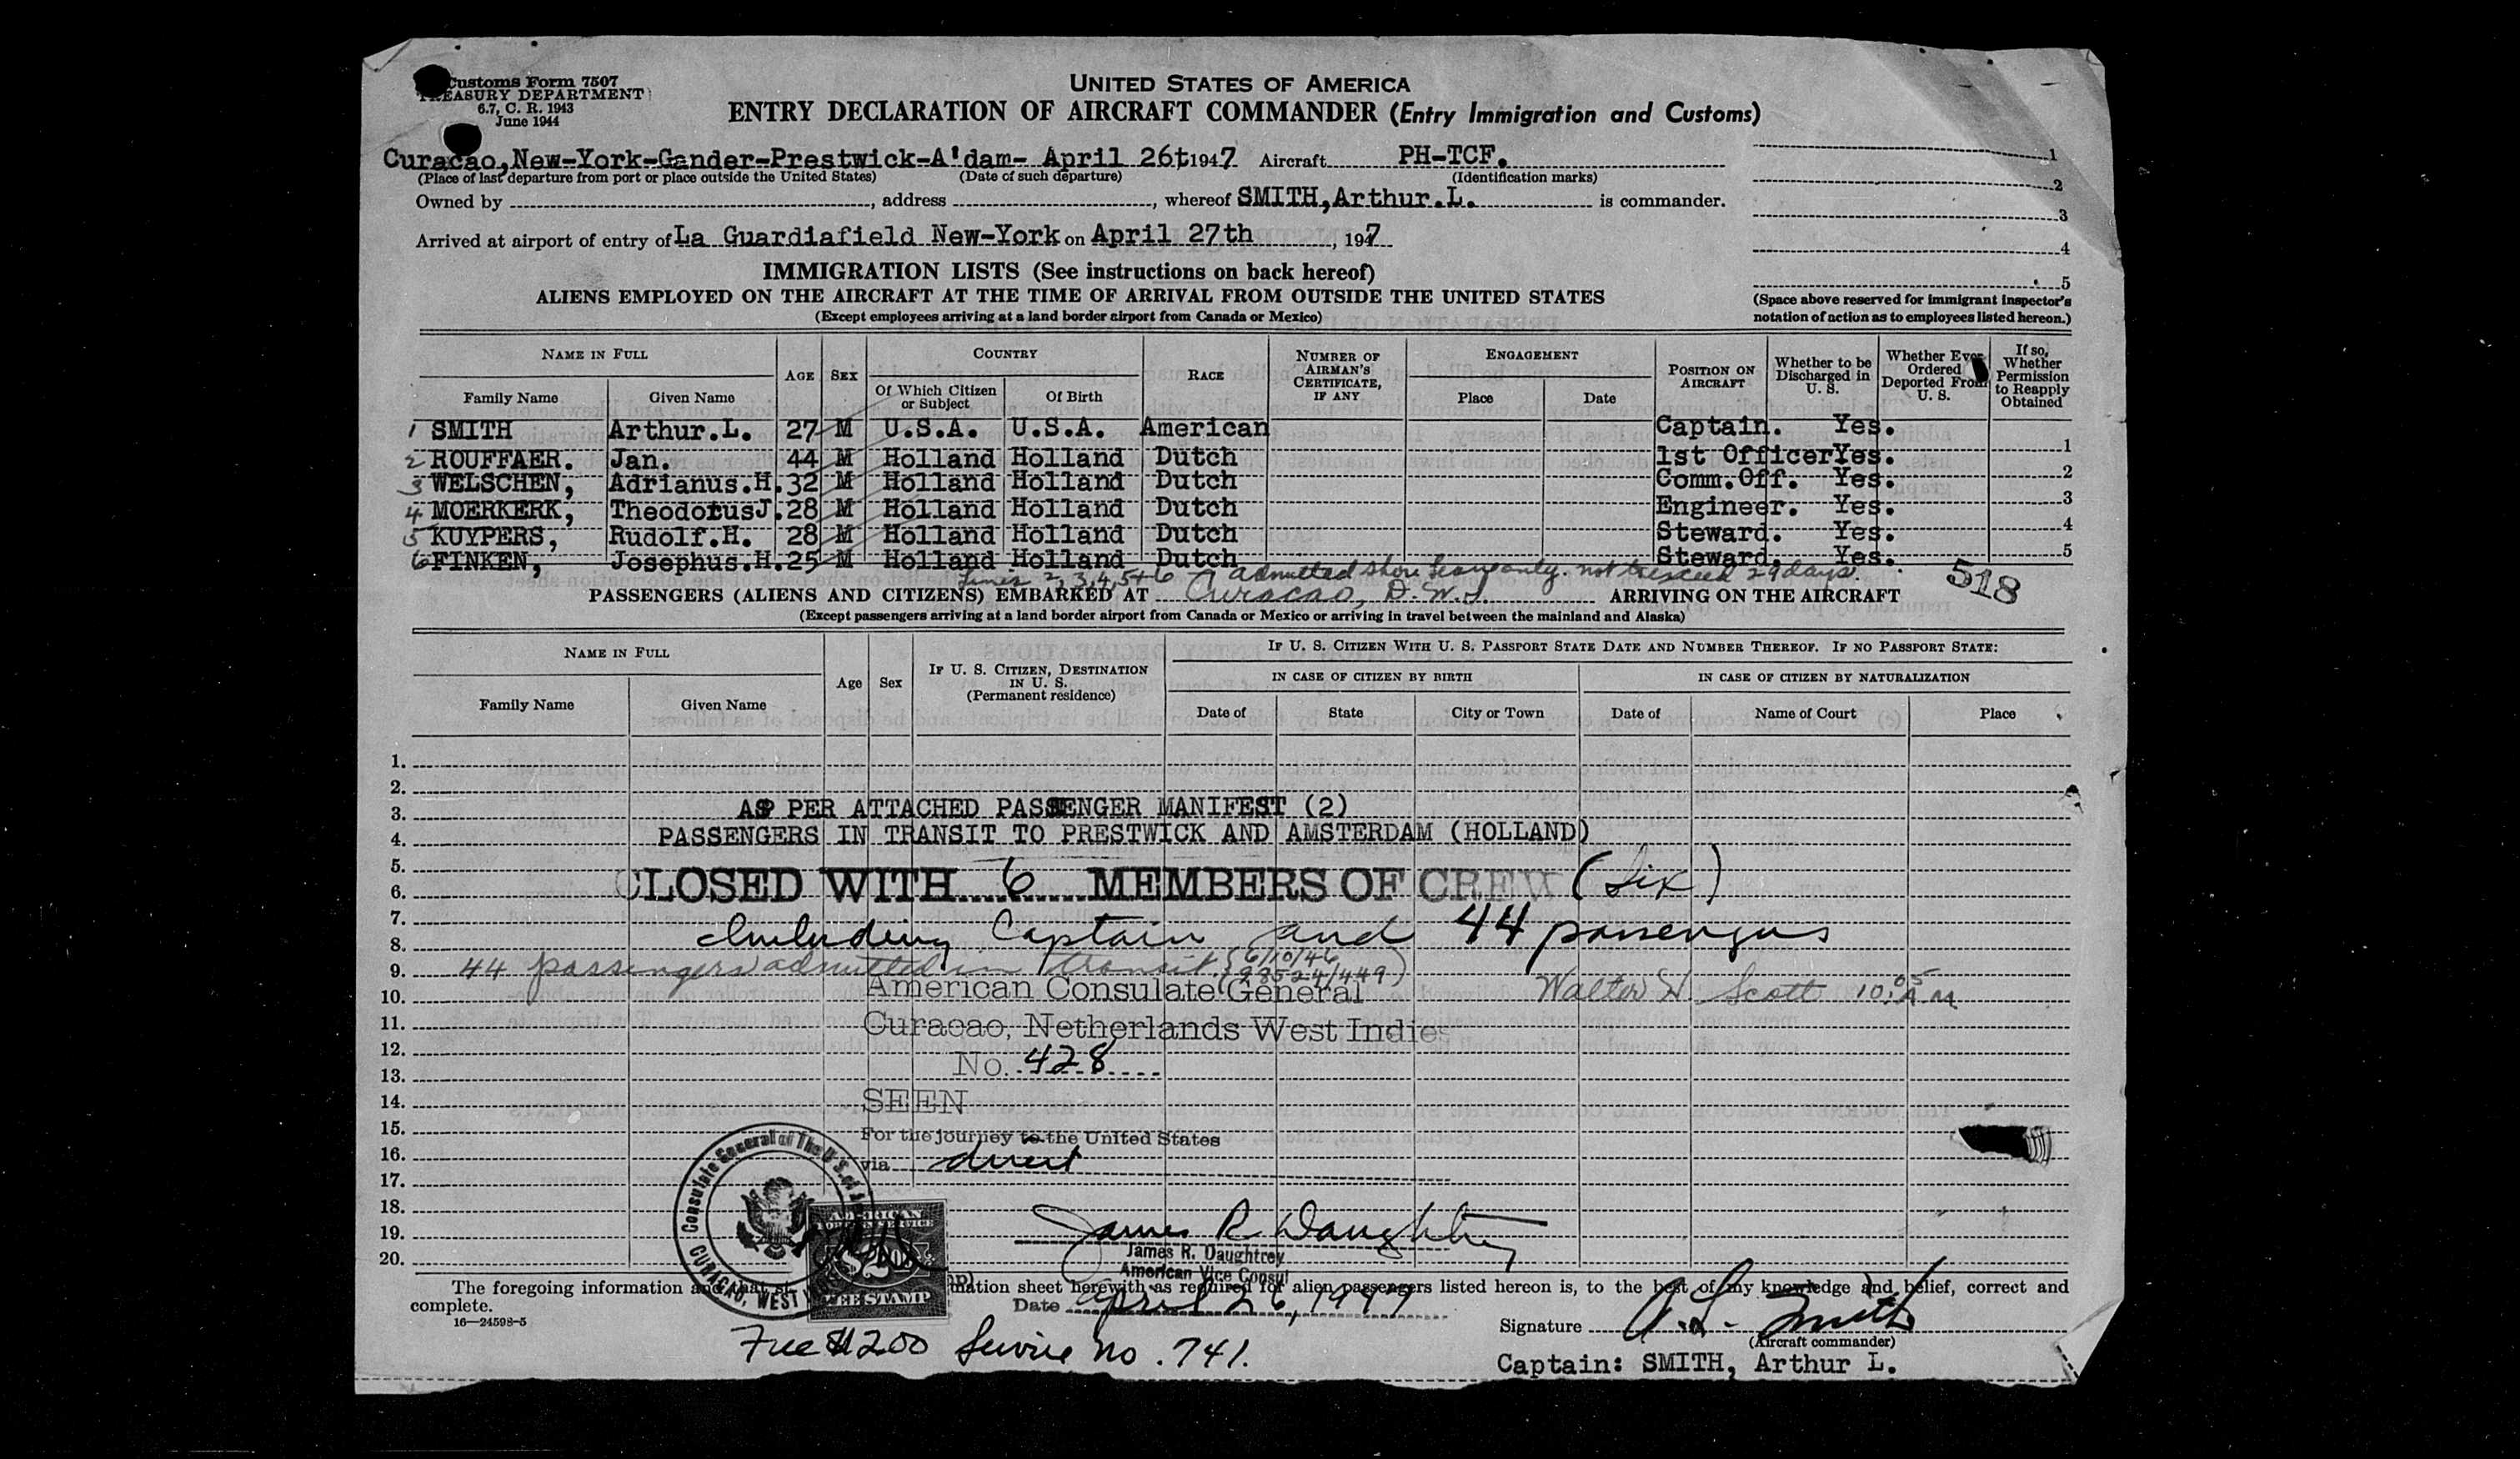 Customs Form 7507
TREASURY DEPARTMENT
6.7, C. R. 1943
June 1944
UNITED STATES OF AMERICA
ENTRY DECLARATION OF AIRCRAFT COMMANDER (Entry Immigration and Customs)
Curacao,New-York-Gander-Prestwick-A'dam- April 26t 1947 Aircraft PH-TCF.
(Place of last departure from port or place outside the United States) (Date of such departure) (Identification marks)
Owned by , address , whereof SMITH,Arthur.L. is commander.
Arrived at airport of entry of La Guardiafield New-York on April 27th , 1947
1
2
3
4
5
(Space above reserved for immigrant inspector's
notation of action as to employees listed hereon.)
IMMIGRATION LISTS (See instructions on back hereof)
ALIENS EMPLOYED ON THE AIRCRAFT AT THE TIME OF ARRIVAL FROM OUTSIDE THE UNITED STATES
(Except employees arriving at a land border airport from Canada or Mexico)
NAME IN FULL AGE SEX COUNTRY RACE NUMBER OF AIRMAN'S CERTIFICATE, IF ANY ENGAGEMENT POSITION ON AIRCRAFT Whether to be Discharged in U. S. Whether Ever Ordered Deported From U. S. If so, Whether Permission to Reapply Obtained
Family Name Given Name Of Which Citizen or Subject Of Birth Place Date
1 SMITH Arthur.L. 27 M U.S.A. U.S.A. American Captain. Yes.
2 ROUFFAER. Jan. 44 M Holland Holland Dutch 1st Officer Yes. 1
3 WELSCHEN, Adrianus.H. 32 M Holland Holland Dutch Comm.Off. Yes. 2
4 MOERKERK, TheodotusJ. 28 M Holland Holland Dutch Engineer. Yes. 3
5 KUYPERS, Rudolf.H. 28 M Holland Holland Dutch Steward. Yes. 4
6 FINKEN, Josephus.H. 25 M Holland Holland Dutch Steward. Yes. 5
Lines 2,3,4,5+6 admitted shore leave only. not to exceed 29 days.
518
PASSENGERS (ALIENS AND CITIZENS) EMBARKED AT Curacao, D.W.I. ARRIVING ON THE AIRCRAFT
(Except passengers arriving at a land border airport from Canada or Mexico or arriving in travel between the mainland and Alaska)
NAME IN FULL Age Sex IF U. S. CITIZEN, DESTINATION IN U. S. (Permanent residence) IF U. S. CITIZEN WITH U. S. PASSPORT STATE DATE AND NUMBER THEREOF. IF NO PASSPORT STATE:
IN CASE OF CITIZEN BY BIRTH IN CASE OF CITIZEN BY NATURALIZATION
Family Name Given Name Date of State City or Town Date of Name of Court Place
1.
2.
3. AS PER ATTACHED PASSENGER MANIFEST (2)
4. PASSENGERS IN TRANSIT TO PRESTWICK AND AMSTERDAM (HOLLAND)
5.
6. CLOSED WITH 6 MEMBERS OF CREW (Six)
7.
8. Including Captain and 44 passengers
9. 44 passengers admitted in transit. (6/10/46 98524/449)
10. American Consulate General Walter H. Scott 10:05 A M
11. Curacao, Netherlands West Indies
12.
13. No. 428
14. SEEN
15. For the journey to the United States
16. via direct
17.
18.
19. James R Daughtrey
James R. Daughtrey
20. American Vice Consul
Consulate General of The U.S. of
CURACAO, WEST
AMERICAN
FOREIGN SERVICE
$2
FEE STAMP
The foregoing information mation sheet herewith as required for alien passengers listed hereon is, to the best of my knowledge and belief, correct and
complete. Date April 26, 1947
16—24598-5
Signature A. L. Smith
(Aircraft commander)
Fee $2.00 Service No. 741.
Captain: SMITH, Arthur L.